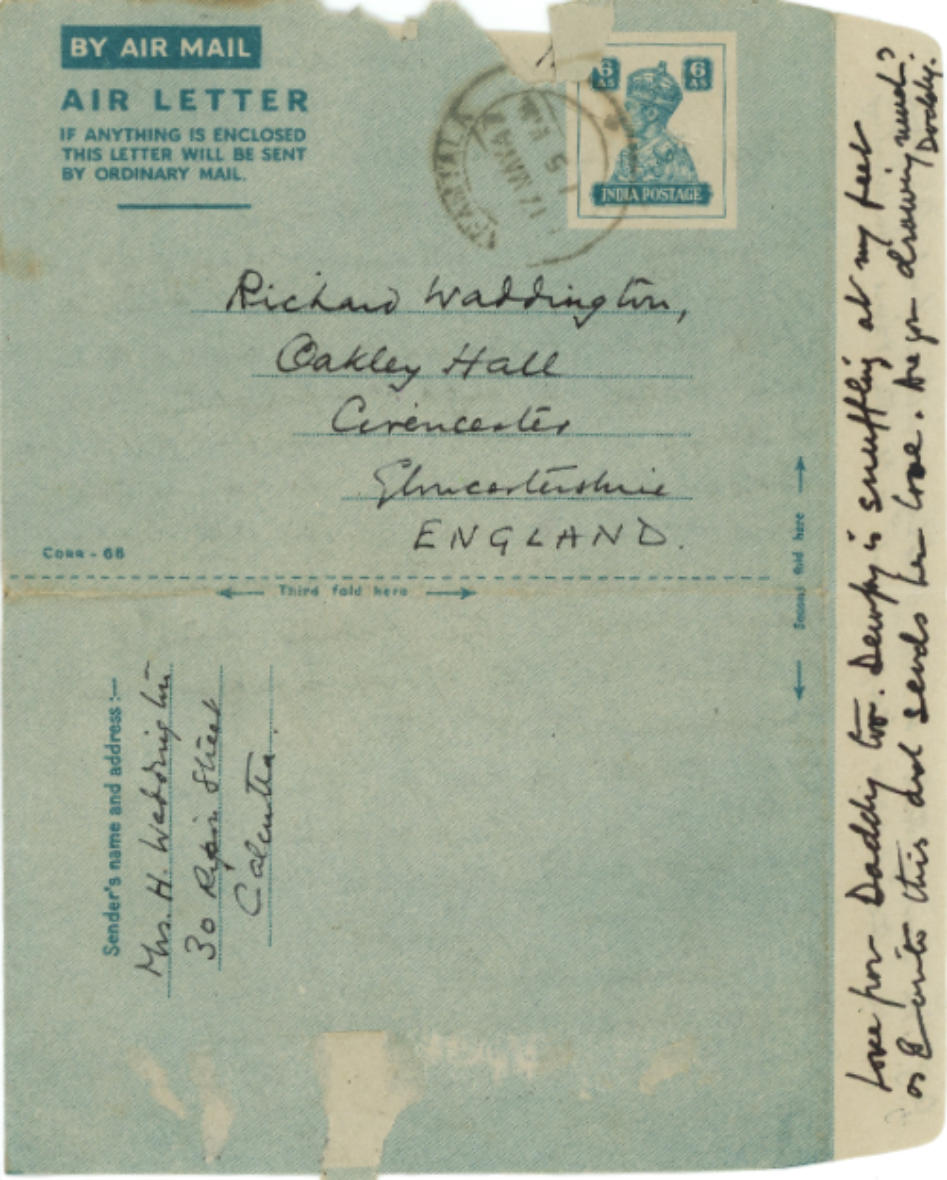 BY AIR MAIL
AIR LETTER
IF ANYTHING IS ENCLOSED
THIS LETTER WILL BE SENT
BY ORDINARY MAIL.
6 AS
6 AS
INDIA POSTAGE
17 MAY 47
Richard Waddington,
Oakley Hall
Cirencester
Gloucestershire
ENGLAND.
CORR - 68
Third fold here
Second fold here
Sender's name and address :—
Mrs. H. Waddington
30 Ripon Street
Calcutta.
Love from Daddy too. is snuffling at my feet
as I write this and sends her love. Are you drawing much?
Daddy.